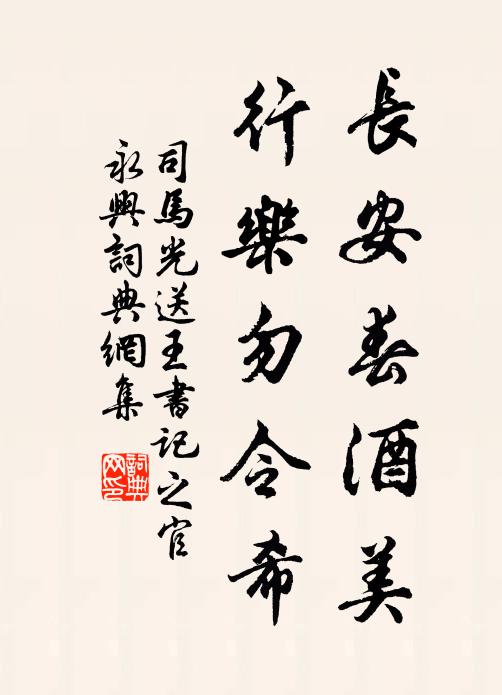 長安春酒美
行樂勿令希
司馬光送王書記之官
永興詞典網集
詞典
网印